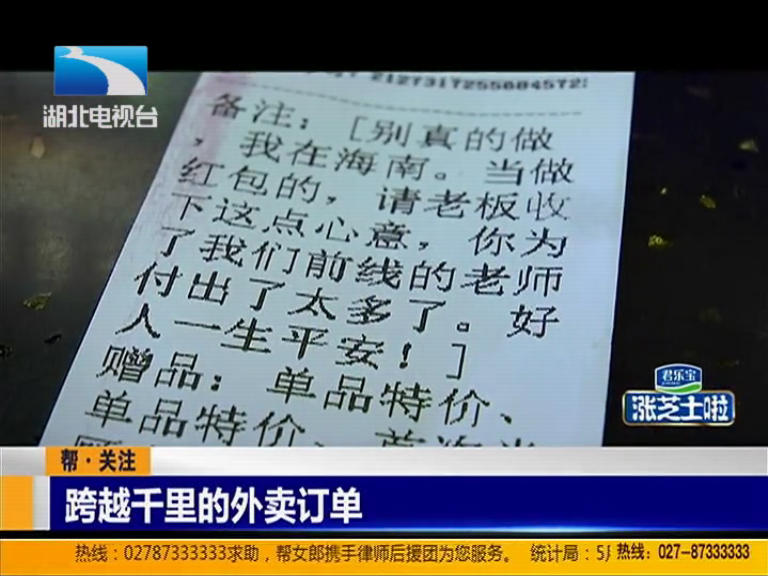 2127317255684572
湖北电视台
备注：[别真的做
，我在海南。当做
红包的，请老板收
下这点心意，你为
了我们前线的老师
付出了太多了。好
人一生平安！]
赠品：单品特价、
单品特价、
君乐宝
涨芝士啦
帮·关注
跨越千里的外卖订单
热线：02787333333求助，帮女郎携手律师后援团为您服务。 统计局：5月 热线：027-87333333